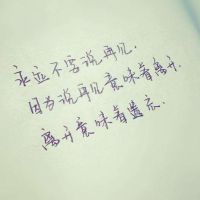 永远不要说再见.
因为说再见意味着离开.
离开意味着遗忘.